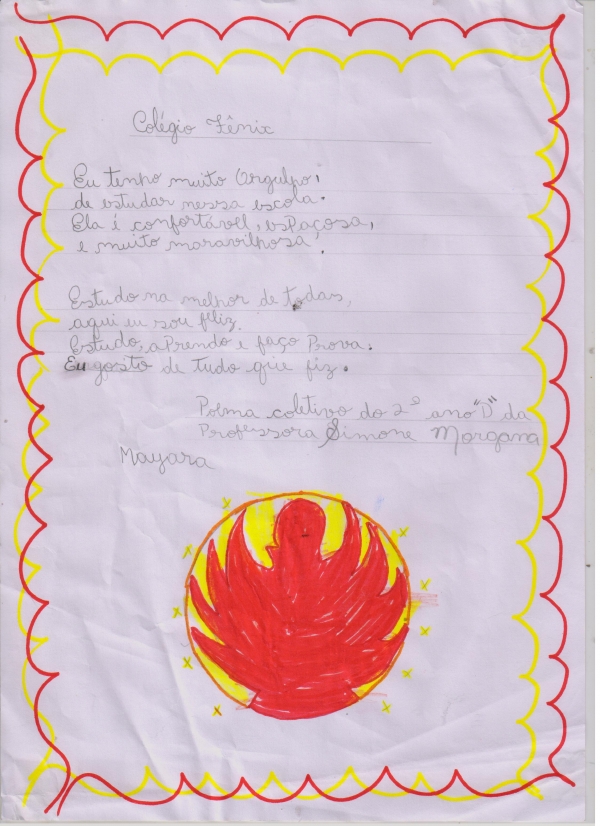 Colégio Fênix
Eu tenho muito Orgulho,
de estudar nessa escola.
Ela é confortável, esPaçosa,
e muito maravilhosa.
Estudo na melhor de todas,
aqui eu sou feliz.
Estudo, aPrendo e faço Prova.
Eu gosto de Tudo que fiz.
Poema coletivo do 2º ano "D" da
Professora Simone Morgana
Mayara